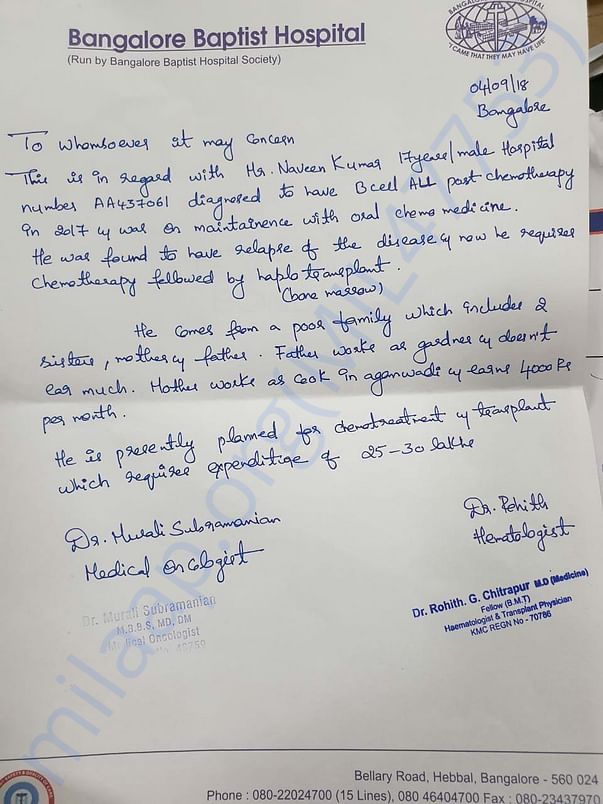 Bangalore Baptist Hospital
(Run by Bangalore Baptist Hospital Society)
"I CAME THAT THEY MAY HAVE LIFE"
04/09/18
Bangalore
To whomsoever it may concern
This is in regard with Mr. Naveen Kumar 17years/male Hospital
number AA437061 diagnosed to have B cell ALL post chemotherapy
in 2017 & was on maintainence with oral chemo medicine.
He was found to have relapse of the disease & now he requires
chemotherapy followed by haplo transplant.
(bone marrow)
He comes from a poor family which includes 2
sisters, mother & father. Father works as gardner & doesn't
ear much. Mother works as cook in aganwadi & earns 4000 Rs
per month.
He is presently planned for chemotreatment & transplant
which requires expenditige of 25-30 lakhs
Dr. Murali Subramanian
Medical Oncologist
Dr. Rohith
Hematologist
Dr. Murali Subramanian
M.B.B.S, MD, DM
Medical Oncologist
No. 49759
Dr. Rohith. G. Chitrapur M.D (Medicine)
Fellow (B.M.T)
Haematologist & Transplant Physician
KMC REGN No - 70786
milaap.org(MIL47753)
Bellary Road, Hebbal, Bangalore - 560 024
Phone : 080-22024700 (15 Lines), 080 46404700 Fax : 080-23437970